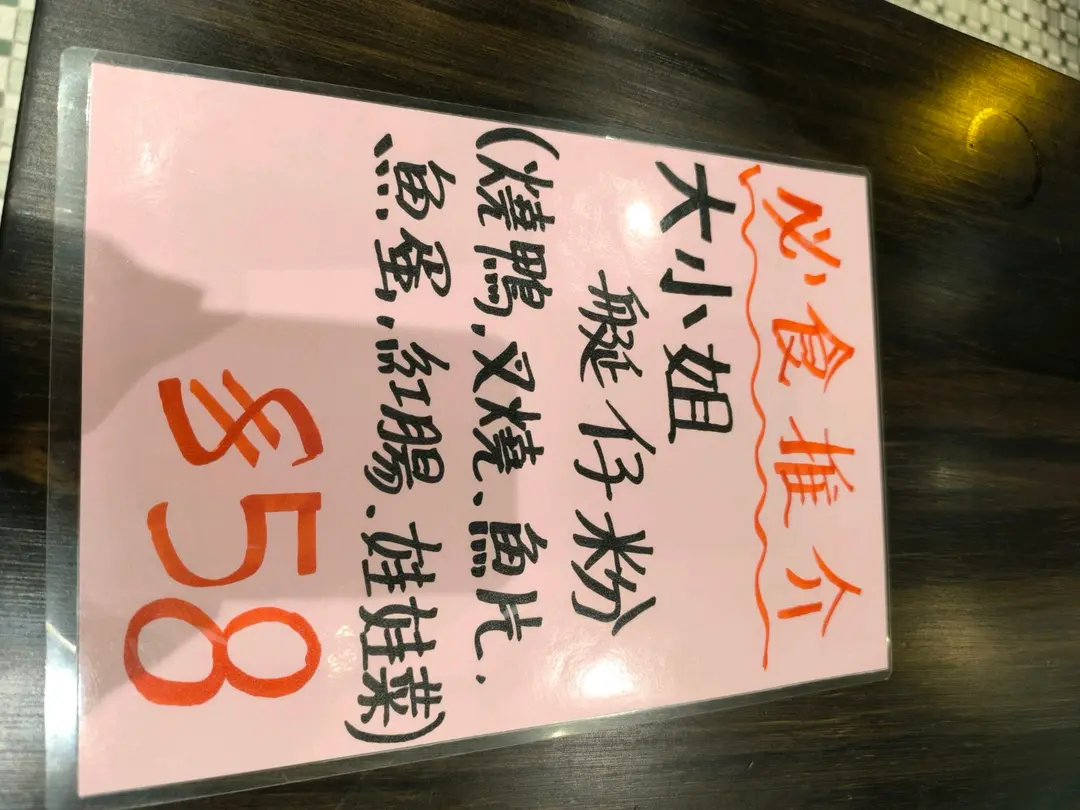 必食推介
大小姐
艇仔粉
(燒鴨、叉燒、魚片、
魚蛋、紅腸、娃娃菜)
$58